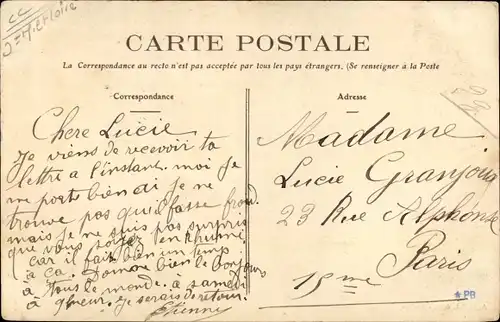 CC
CARTE POSTALE
La Correspondance au recto n'est pas acceptée par tous les pays étrangers. (Se renseigner à la Poste
Correspondance
Chere Lucie
Je viens de recevoir ta
lettre a l'instant moi je
me porte bien di je ne
trouve pas qu'il fasse froid
mais je ne suis pas surpris
que vous soyez enrhumé
car il fait bien un temps
à ça. Donne bien le bonjour
à tous le monde a samedi
je serais de retour.
Etienne
Adresse
Madame
Lucie Granjoux
23 Rue Alphonse
Paris
15me
*PB